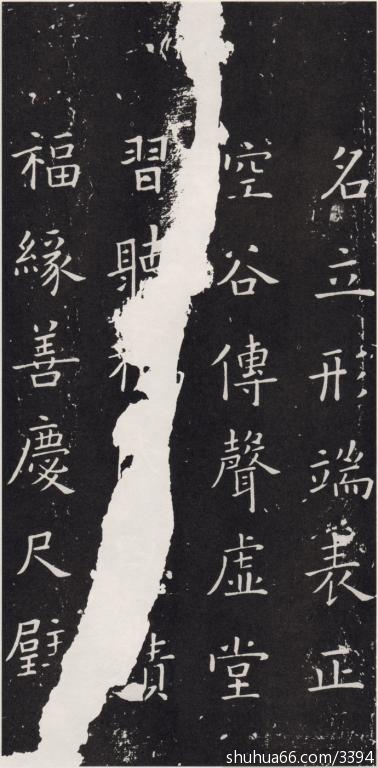 名立形端表正
空谷傳聲虚堂
習聽
福緣善慶尺璧
shuhua66.com/3394